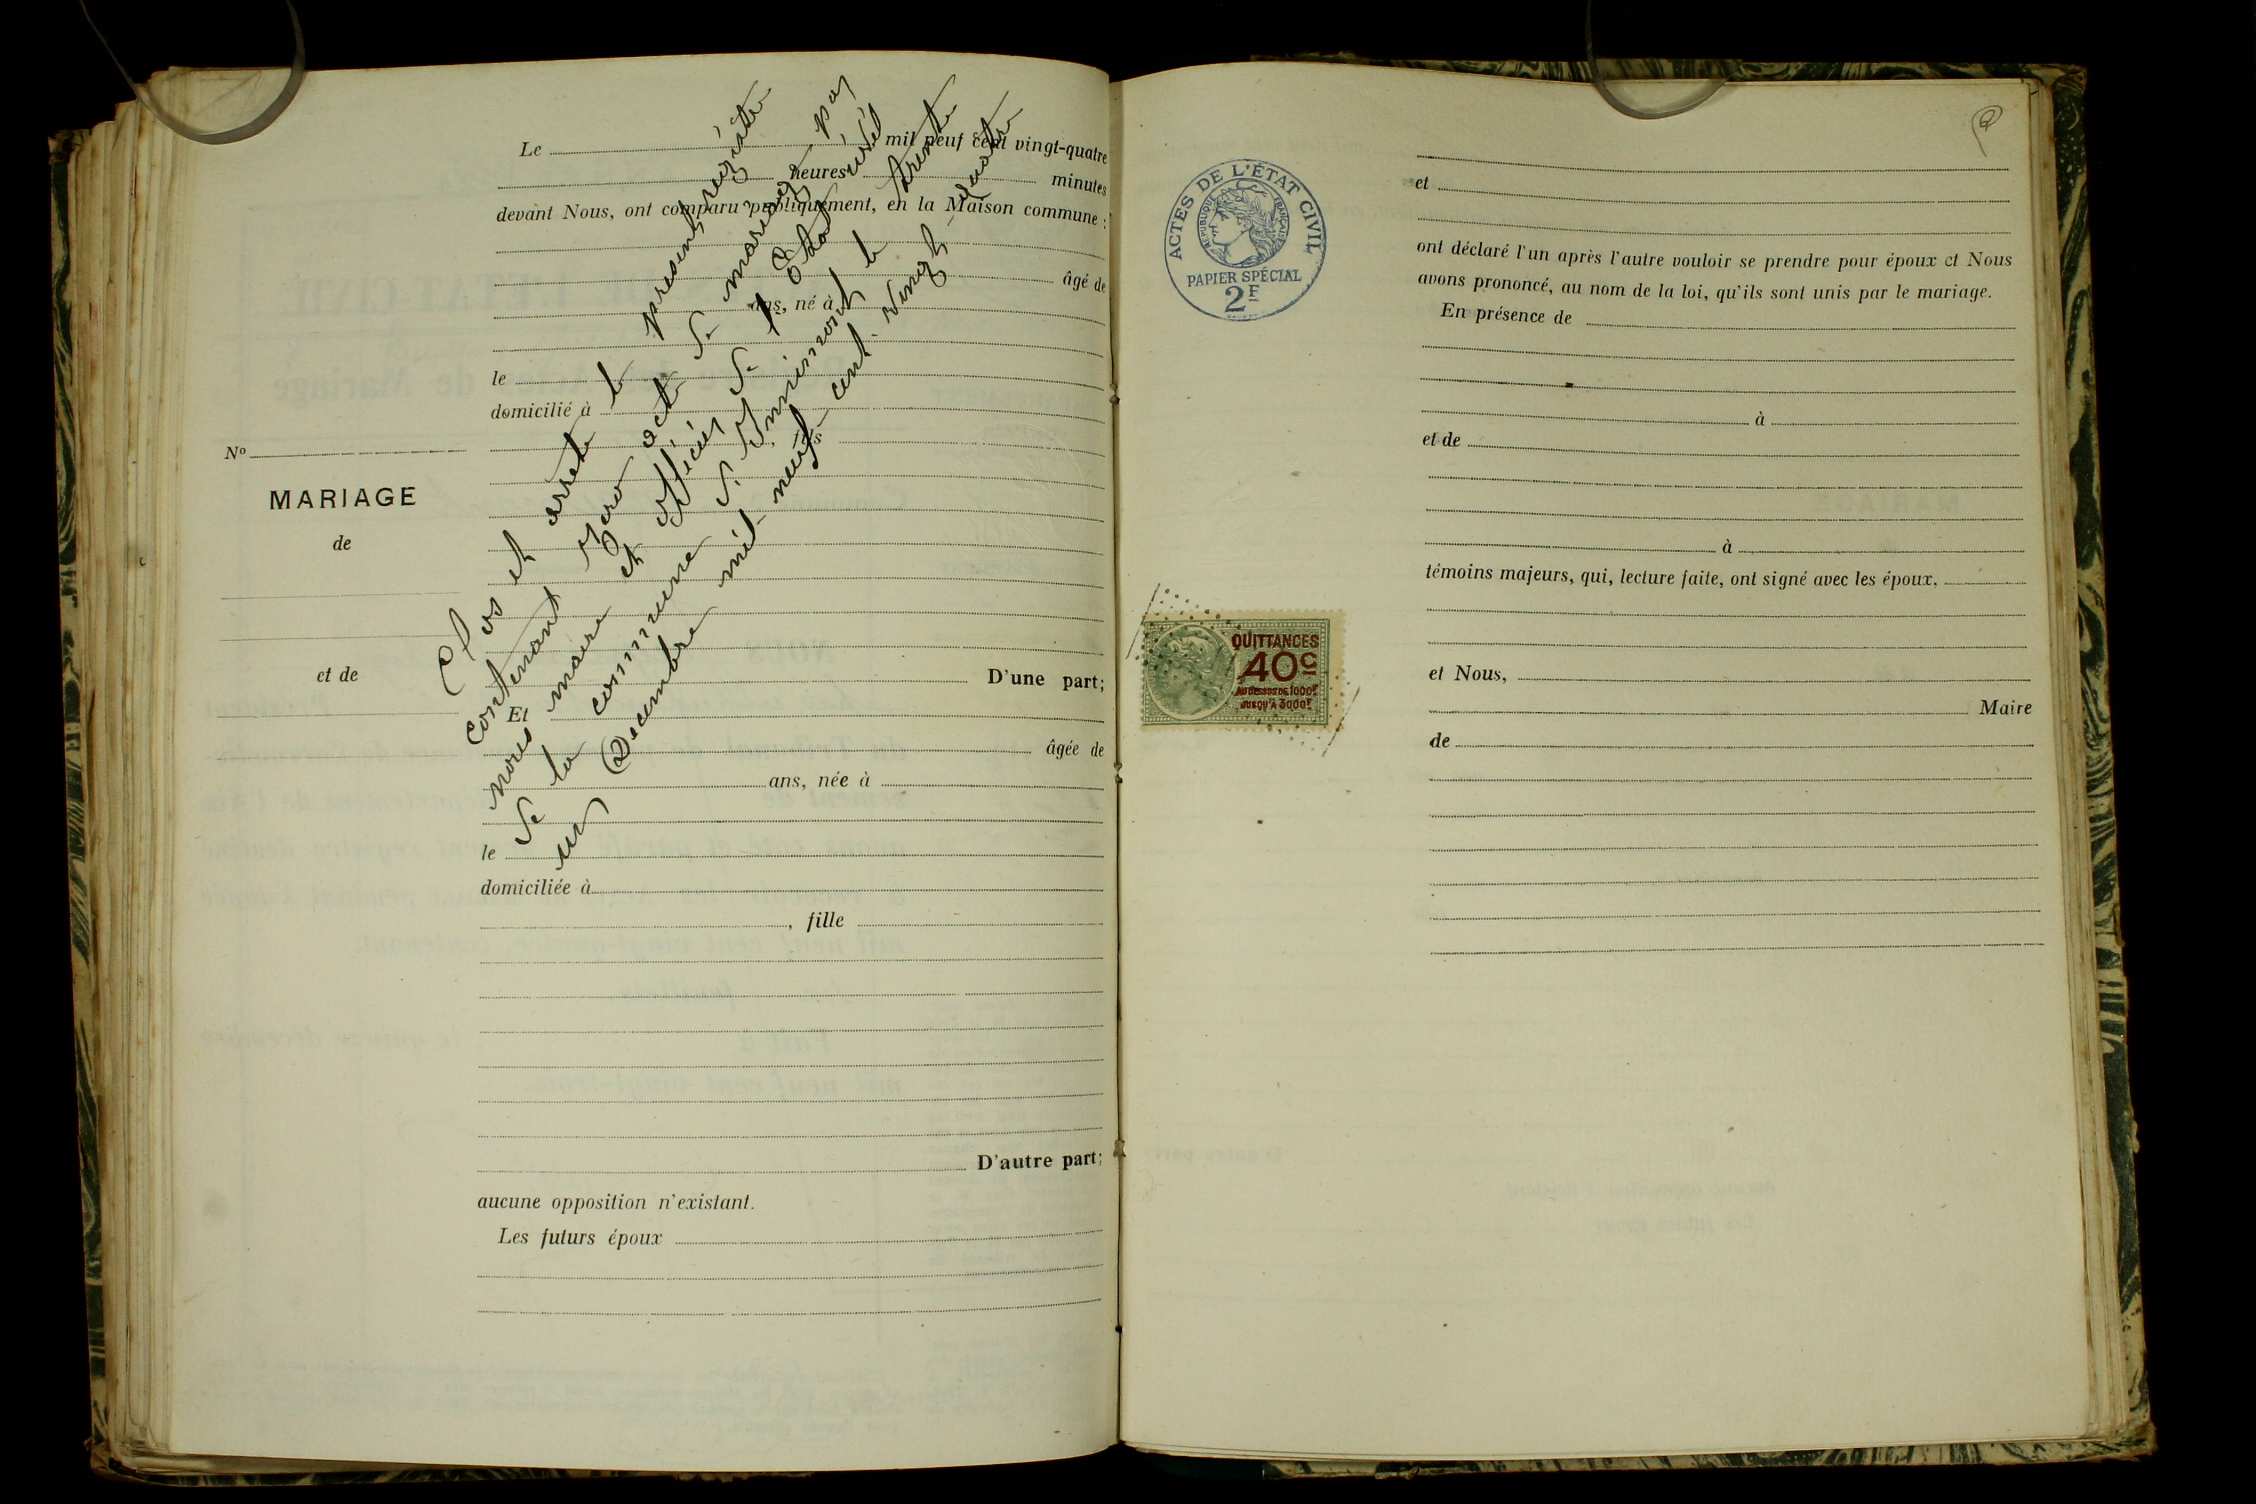 Le mil neuf cent vingt-quatre
heures minutes
devant Nous, ont comparu publiquement, en la Maison commune :
âgé de
ans, né à
le
domicilié à
fils
D'une part;
Et
âgée de
ans, née à
le
domiciliée à
, fille
D'autre part;
aucune opposition n'existant.
Les futurs époux
No
MARIAGE
de
et de
Clos et arrêté le présent registre
contenant zéro acte de mariage par
nous maire et officier de l'État civil
de la commune de
un Décembre mil neuf cent vingt-quatre
le trente
ACTES DE L'ÉTAT CIVIL
RÉPUBLIQUE FRANÇAISE
PAPIER SPÉCIAL
2F
QUITTANCES
40c
AU DESSUS DE 1000F
JUSQU'A 3000F
et
ont déclaré l'un après l'autre vouloir se prendre pour époux et Nous
avons prononcé, au nom de la loi, qu'ils sont unis par le mariage.
En présence de
à
et de
à
témoins majeurs, qui, lecture faite, ont signé avec les époux.
et Nous,
Maire
de